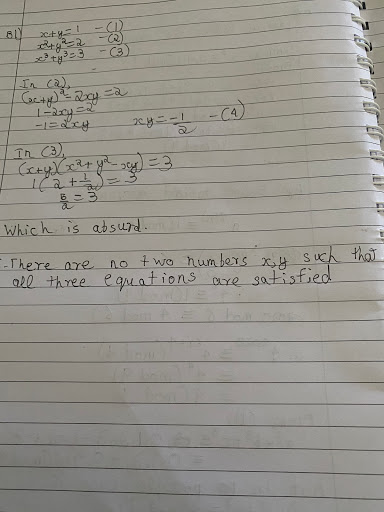 B1) x+y=1 -(1)
x²+y²=2 -(2)
x³+y³=3 -(3)
In (2),
(x+y)²-2xy=2
1-2xy=2
-1=2xy xy=-1/2 -(4)
In (3),
(x+y)(x²+y²-xy)=3
1(2+1/2)=3
5/2=3
Which is absurd.
∴There are no two numbers x,y such that
all three equations are satisfied